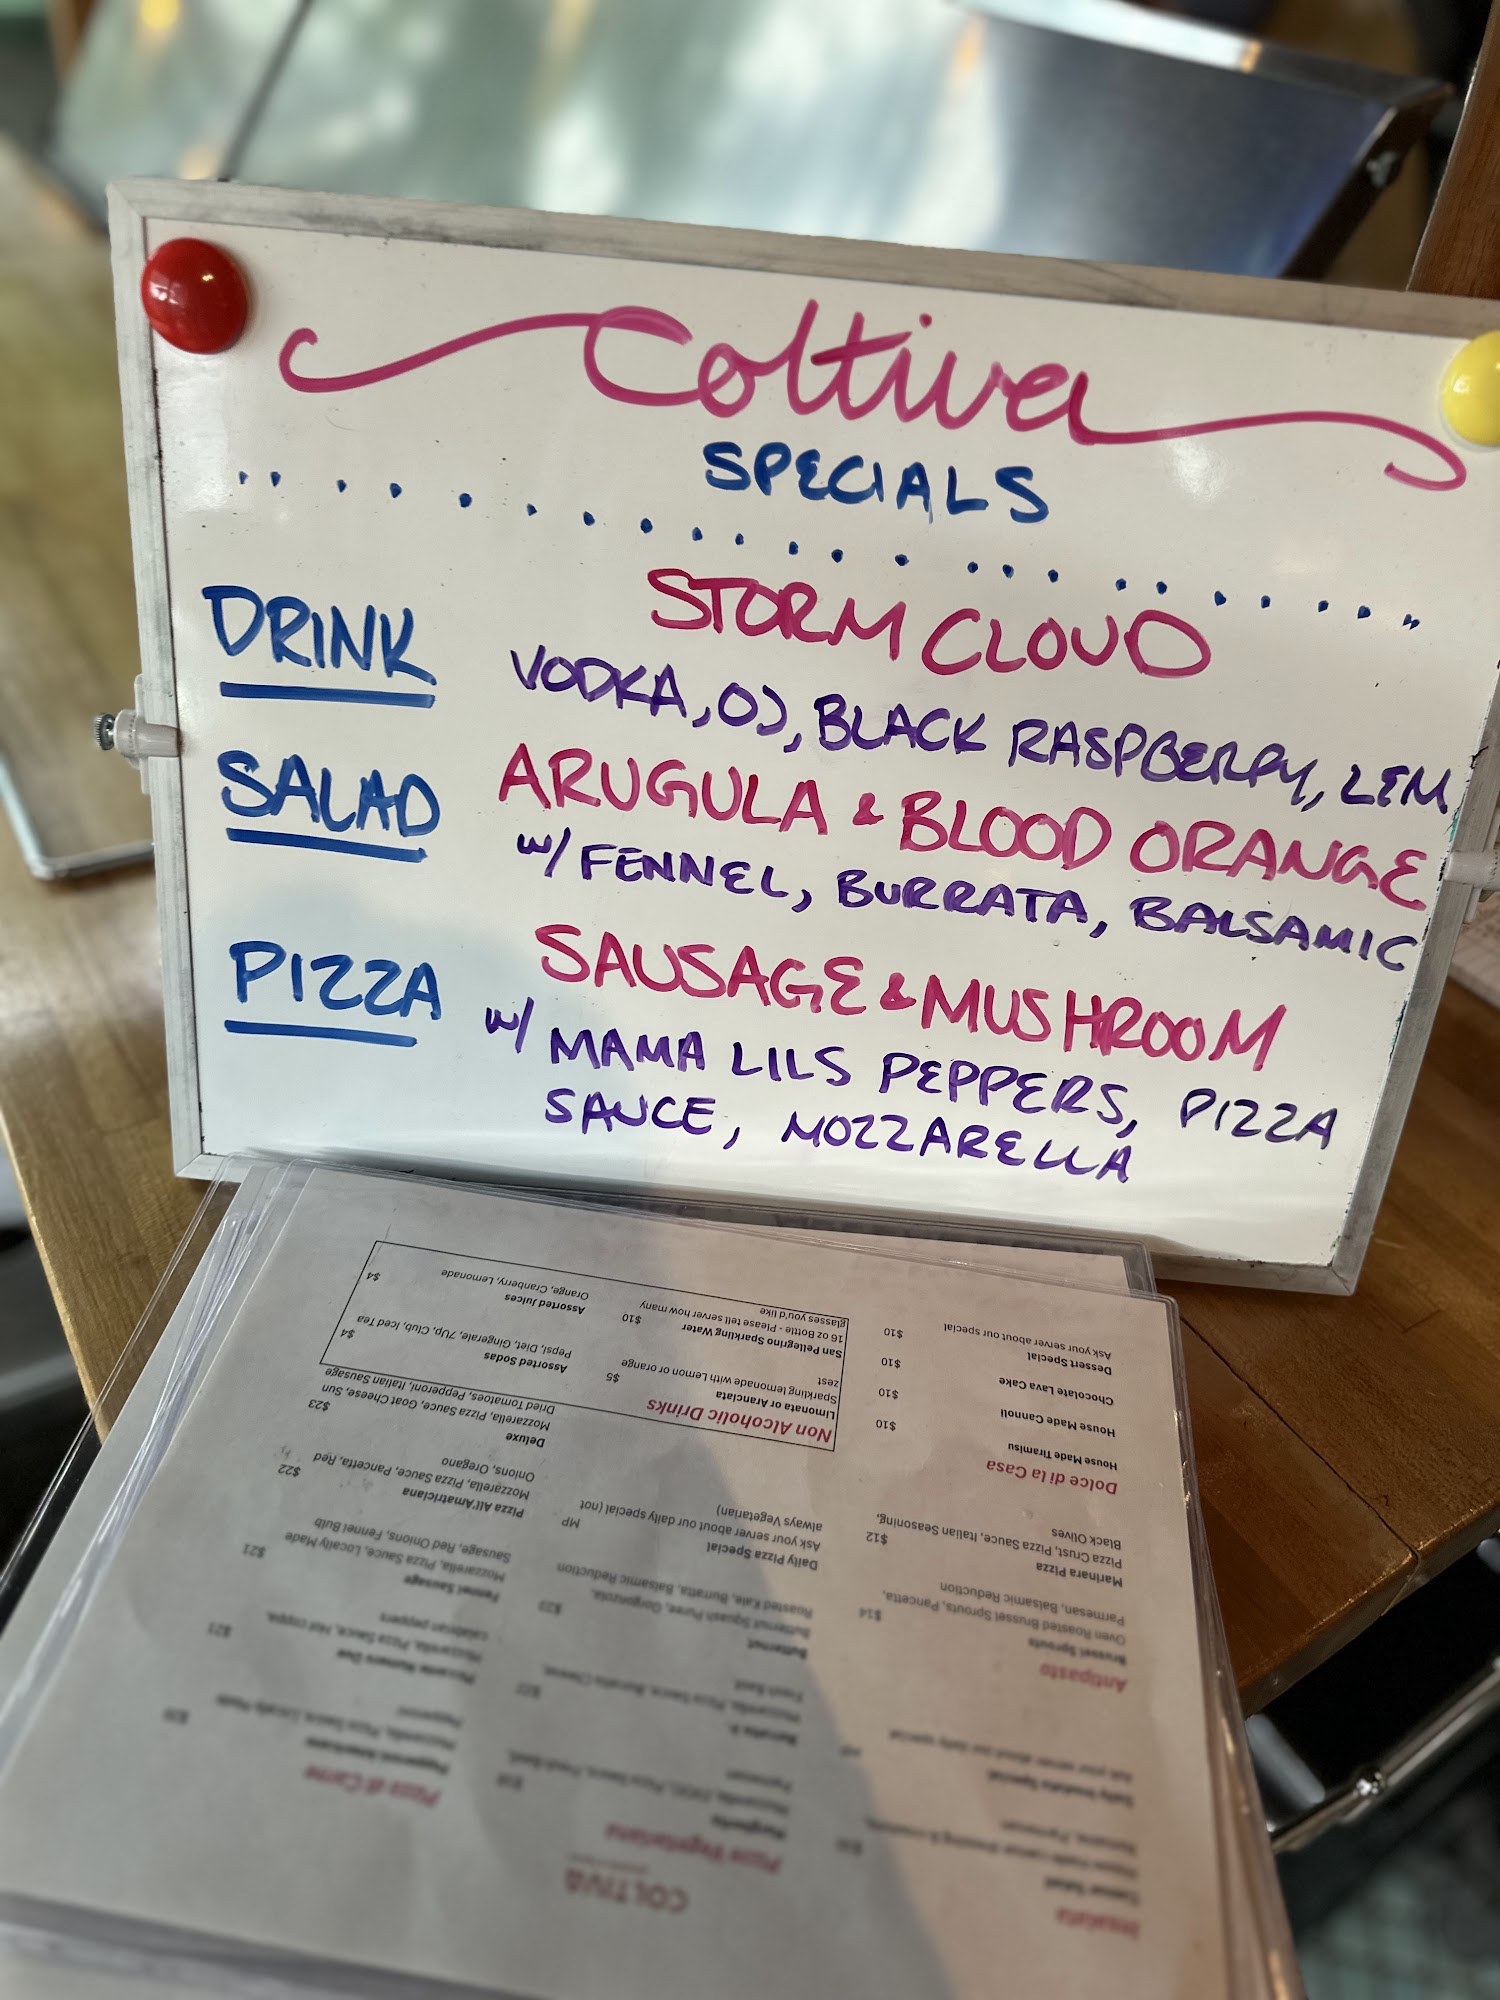 Coltiva
SPECIALS
DRINK
STORM CLOUD
VODKA, OJ, BLACK RASPBERRY, LEM
SALAD
ARUGULA & BLOOD ORANGE
w/ FENNEL, BURRATA, BALSAMIC
PIZZA
SAUSAGE & MUSHROOM
w/ MAMA LILS PEPPERS, PIZZA
SAUCE, MOZZARELLA
COLTIVA
Insalata
Caesar Salad
Daily Insalata Special
Ask your server about our daily special
Antipasto
Brussel Sprouts $14
Oven Roasted Brussel Sprouts, Pancetta,
Parmesan, Balsamic Reduction
Marinara Pizza $12
Pizza Crust, Pizza Sauce, Italian Seasoning,
Black Olives
Dolce di la Casa
House Made Tiramisu $10
House Made Cannoli $10
Chocolate Lava Cake $10
Dessert Special $10
Ask your server about our special
Pizza Vegetariana
Margherita
Butternut
Butternut Squash Puree, Gorgonzola,
Roasted Kale, Burratta, Balsamic Reduction
Daily Pizza Special MP
Ask your server about our daily special (not
always Vegetarian)
Non Alcoholic Drinks
Limonata or Aranciata $5
Sparkling lemonade with Lemon or orange
zest
San Pellegrino Sparkling Water $10
16 oz Bottle - Please tell server how many
glasses you'd like
Pizza di Carne
Pepperoni Americano
Mozzarella, Pizza Sauce, Locally Made
Pepperoni
Piccante Numero Due $21
Mozzarella, Pizza Sauce, Hot coppa,
calabrian peppers
Fennel Sausage $21
Mozzarella, Pizza Sauce, Locally Made
Sausage, Red Onions, Fennel Bulb
Pizza All'Amatriciana $22
Mozzarella, Pizza Sauce, Pancetta, Red
Onions, Oregano
Deluxe $23
Mozzarella, Pizza Sauce, Goat Cheese, Sun
Dried Tomatoes, Pepperoni, Italian Sausage
Assorted Sodas $4
Pepsi, Diet, Gingerale, 7Up, Club, Iced Tea
Assorted Juices $4
Orange, Cranberry, Lemonade